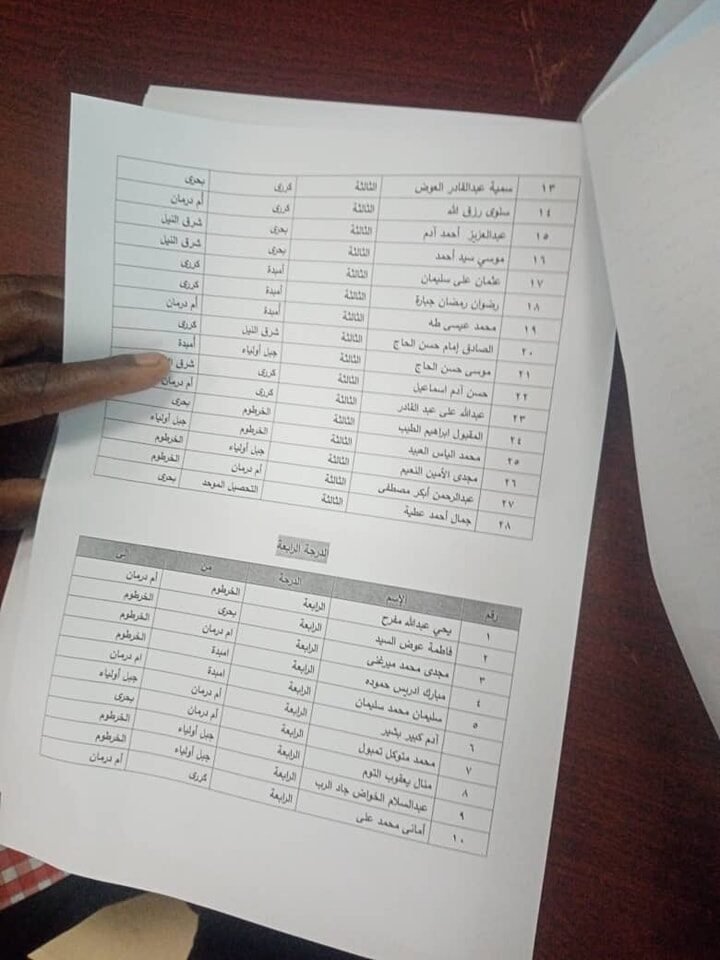 ١٣ سمية عبدالقادر العوض الثالثة كررى بحرى
١٤ سلوى رزق الله الثالثة كررى أم درمان
١٥ عبدالعزيز أحمد آدم الثالثة بحرى شرق النيل
١٦ موسي سيد أحمد الثالثة بحرى شرق النيل
١٧ عثمان على سليمان الثالثة أمبدة كررى
١٨ رضوان رمضان جبارة الثالثة أمبدة كررى
١٩ محمد عيسى طه الثالثة أمبدة أم درمان
٢٠ الصادق إمام حسن الحاج الثالثة شرق النيل كررى
٢١ موسى حسن الحاج الثالثة جبل أولياء أمبدة
٢٢ حسن آدم اسماعيل الثالثة كررى شرق
٢٣ عبدالله على عبد القادر الثالثة كررى أم درمان
٢٤ المقبول ابراهيم الطيب الثالثة الخرطوم بحرى
٢٥ محمد الياس العبيد الثالثة الخرطوم جبل أولياء
٢٦ مجدى الأمين النعيم الثالثة جبل أولياء الخرطوم
٢٧ عبدالرحمن أبكر مصطفى الثالثة أم درمان الخرطوم
٢٨ جمال أحمد عطية الثالثة التحصيل الموحد بحرى
الدرجة الرابعة
رقم الإسم الدرجة من الى
١ يحي عبدالله مفرح الرابعة الخرطوم أم درمان
٢ فاطمة عوض السيد الرابعة بحرى الخرطوم
٣ مجدى محمد ميرغنى الرابعة ام درمان الخرطوم
٤ مبارك ادريس حموده الرابعة امبدة الخرطوم
٥ سليمان محمد سليمان الرابعة امبدة ام درمان
٦ آدم كبير بشير الرابعة أم درمان جبل أولياء
٧ محمد متوكل تمبول الرابعة أم درمان بحرى
٨ منال يعقوب التوم الرابعة جبل أولياء الخرطوم
٩ عبدالسلام الخواض جاد الرب الرابعة جبل أولياء الخرطوم
١٠ أمانى محمد على الرابعة كررى أم درمان